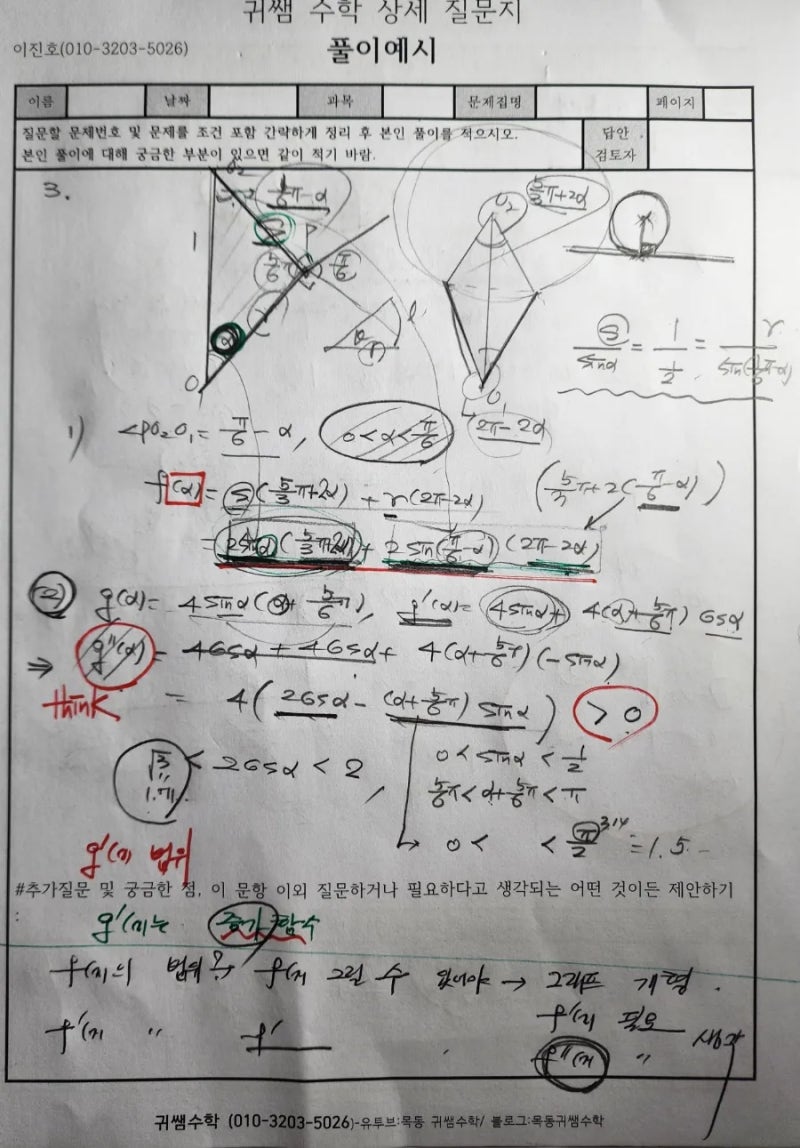 귀쌤 수학 상세 질문지
이진호(010-3203-5026)
풀이예시
이름 날짜 과목 문제집명 페이지
질문할 문제번호 및 문제를 조건 포함 간략하게 정리 후 본인 풀이를 적으시오.
본인 풀이에 대해 궁금한 부분이 있으면 같이 적기 바람.
답안
검토자
3.
1/6π-α
5/3π+2α
O₂
1
P
S
5/6π
π/6
r
α
θ
l
O
O₁
2π-2α
S/sinα = 1/(1/2) = r/sin(1/6π-α)
1) <PO₂O₁= π/6 - α, 0<α<π/6
f(α)= S(5/3π+2α) + r(2π-2α) (5/3π+2(π/6-α))
= 2sinα(5/3π+2α)+ 2sin(π/6-α)(2π-2α)
2) g(α)= 4sinα(α+5/6π), g'(α)= 4sinα+ 4(α+5/6π)cosα
⇒ g''(α) = 4cosα + 4cosα+ 4(α+5/6π)(-sinα)
think = 4(2cosα- (α+5/6π) sinα) > 0
√3 < 2cosα < 2, 0<sinα<1/2
1.7
5/6π<α+5/6π<π
→ 0< <π/2 3.14 =1.5-
g'(x) 범위
#추가질문 및 궁금한 점, 이 문항 이외 질문하거나 필요하다고 생각되는 어떤 것이든 제안하기
:
g'(x)는 증가함수
f(x)의 범위? f(x) 그릴 수 있어야 → 그래프 개형.
f'(x) 필요
f'(x) " f' f''(x) " 생각
귀쌤수학 (010-3203-5026)-유투브:목동 귀쌤수학/ 블로그:목동귀쌤수학